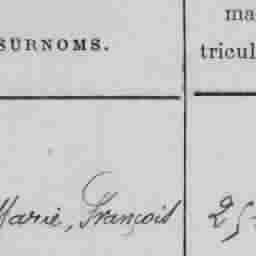 SURNOMS.
ma
tricul
Marie, François
25